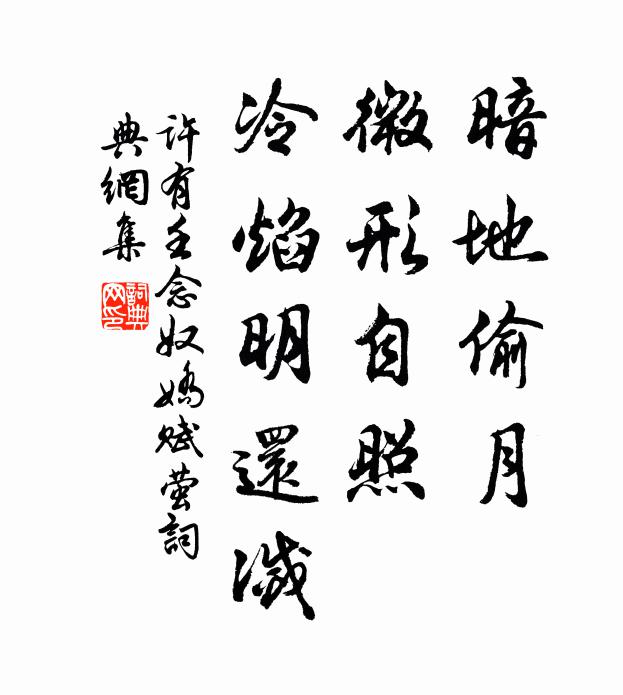 暗地偷月
微形自照
冷焰明還滅
許有壬念奴嬌賦螢詞
典網集
詞典網印